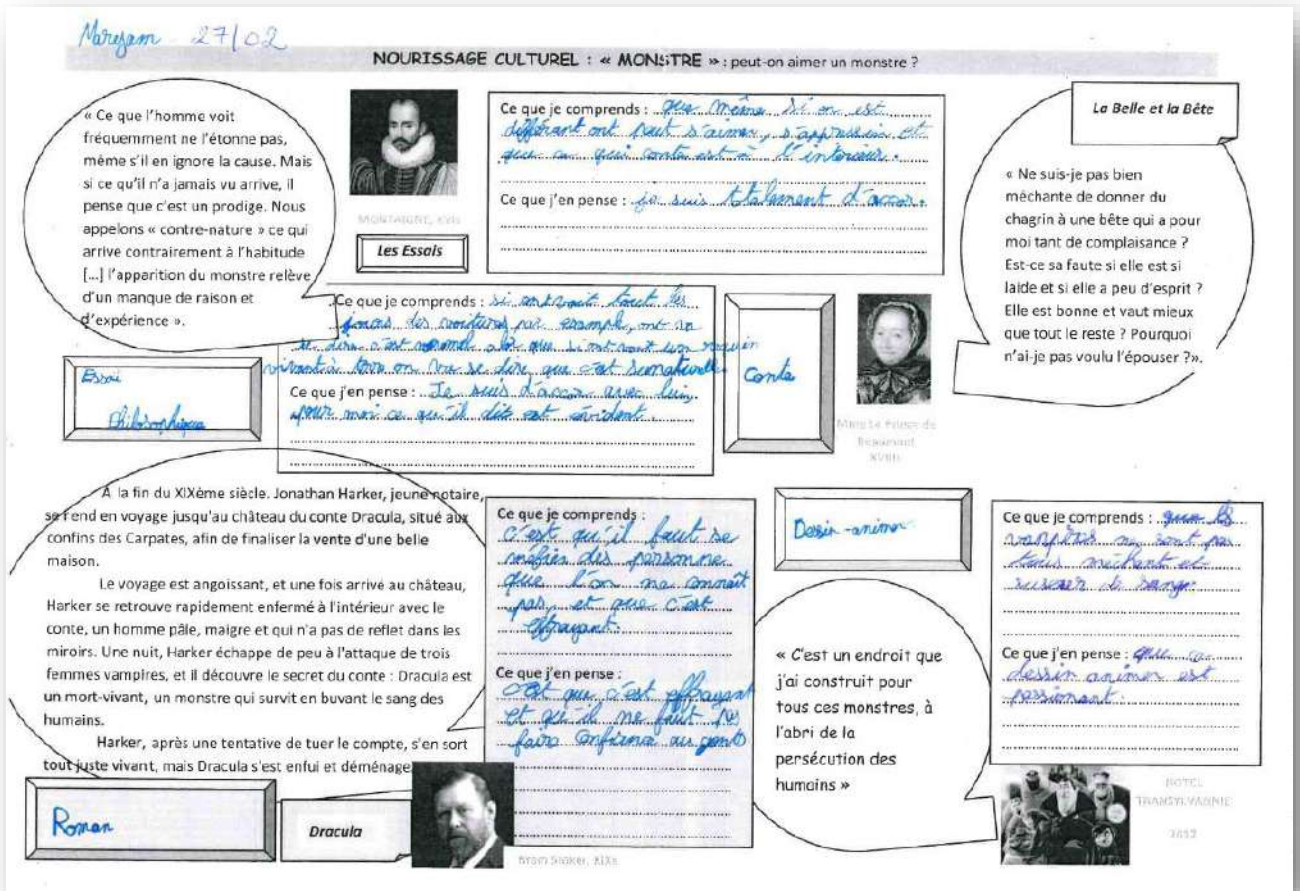 Maryam 27/02
NOURISSAGE CULTUREL : « MONSTRE » : peut-on aimer un monstre ?
« Ce que l'homme voit
fréquemment ne l'étonne pas,
même s'il en ignore la cause. Mais
si ce qu'il n'a jamais vu arrive, il
pense que c'est un prodige. Nous
appelons « contre-nature » ce qui
arrive contrairement à l'habitude
[...] l'apparition du monstre relève
d'un manque de raison et
d'expérience ».
MONTAIGNE, XVIe
Les Essais
Ce que je comprends : que même si on est
différent ont peut s'aimer, s'apprécier et
que ce qui conte est à l'intérieur.
Ce que j'en pense : je suis totalement d'accor.
La Belle et la Bête
« Ne suis-je pas bien
méchante de donner du
chagrin à une bête qui a pour
moi tant de complaisance ?
Est-ce sa faute si elle est si
laide et si elle a peu d'esprit ?
Elle est bonne et vaut mieux
que tout le reste ? Pourquoi
n'ai-je pas voulu l'épouser ?».
Essai
Philosophique
Ce que je comprends : si ont voit tout les
jours des voitures par example, ont va
se dire c'est normal alor que si ont voit un requin
vivant à terre on va se dire que c'est surnaturelle
Ce que j'en pense : Je suis d'accor avec lui,
pour moi ce qu'il dit est évident.
Conte
Marc Le Prince de
Beaumont
XVIIIe
À la fin du XIXème siècle. Jonathan Harker, jeune notaire,
se rend en voyage jusqu'au château du conte Dracula, situé aux
confins des Carpates, afin de finaliser la vente d'une belle
maison.
Le voyage est angoissant, et une fois arrivé au château,
Harker se retrouve rapidement enfermé à l'intérieur avec le
conte, un homme pâle, maigre et qui n'a pas de reflet dans les
miroirs. Une nuit, Harker échappe de peu à l'attaque de trois
femmes vampires, et il découvre le secret du conte : Dracula est
un mort-vivant, un monstre qui survit en buvant le sang des
humains.
Harker, après une tentative de tuer le compte, s'en sort
tout juste vivant, mais Dracula s'est enfui et déménage
Roman
Dracula
Bram Stoker, XIXe
Ce que je comprends :
c'est qu'il faut se
méfier des personne
que l'on ne connaît
pas, et que c'est
effrayant.
Ce que j'en pense :
c'est que c'est effrayant
et qu'il ne faut pas
faire confiance au gents
Dessin-animer
« C'est un endroit que
j'ai construit pour
tous ces monstres, à
l'abri de la
persécution des
humains »
Ce que je comprends : que les
vanpires ne sont pas
tous méchant et
de sang.
Ce que j'en pense : que ce
dessin animer est
passionant.
HOTEL
TRANSYLVANNIE
2012